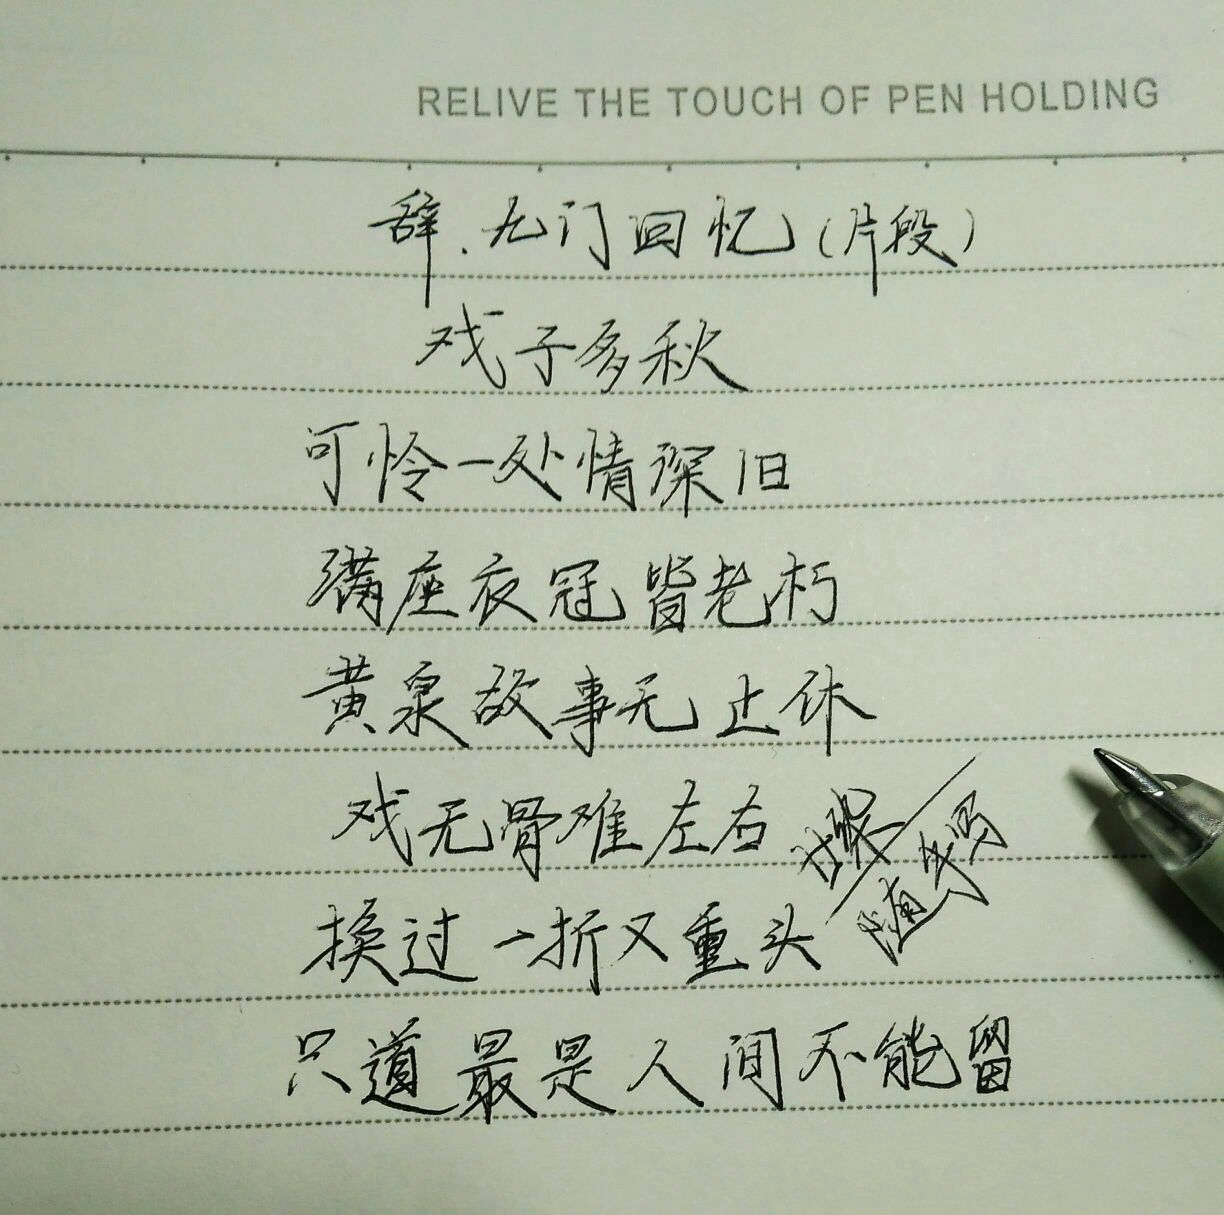 RELIVE THE TOUCH OF PEN HOLDING
辞.九门回忆(片段)
戏子多秋
可怜一处情深旧
满座衣冠皆老朽
黄泉故事无止休
戏无骨难左右
随手写
换过一折又重头
只道最是人间不能留